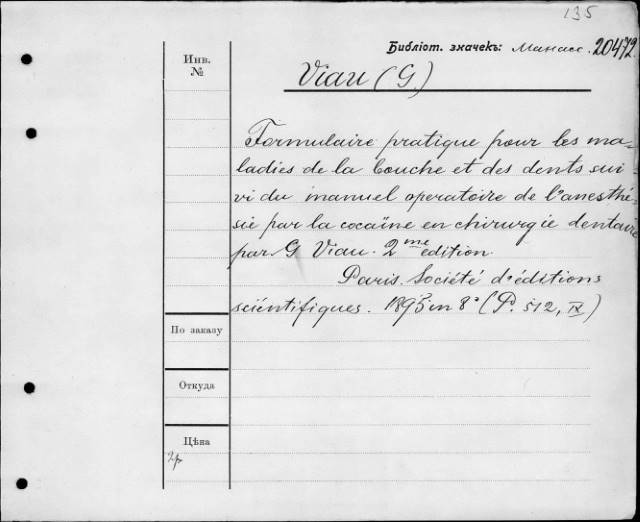 135
Библіот. значекъ: Манасс. 20472.
Инв.
№
Viau (G.)
Formulaire pratique pour les ma-
ladies de la bouche et des dents sui
vi du manuel operatoire de l'anesthé-
sie par la cocaïne en chirurgie dentaire
par G Viau. 2me edition.
Paris. Société d'éditions
sciéntifiques. in 8° (P. 512, IX)
По заказу
Откуда
Цѣна
2р